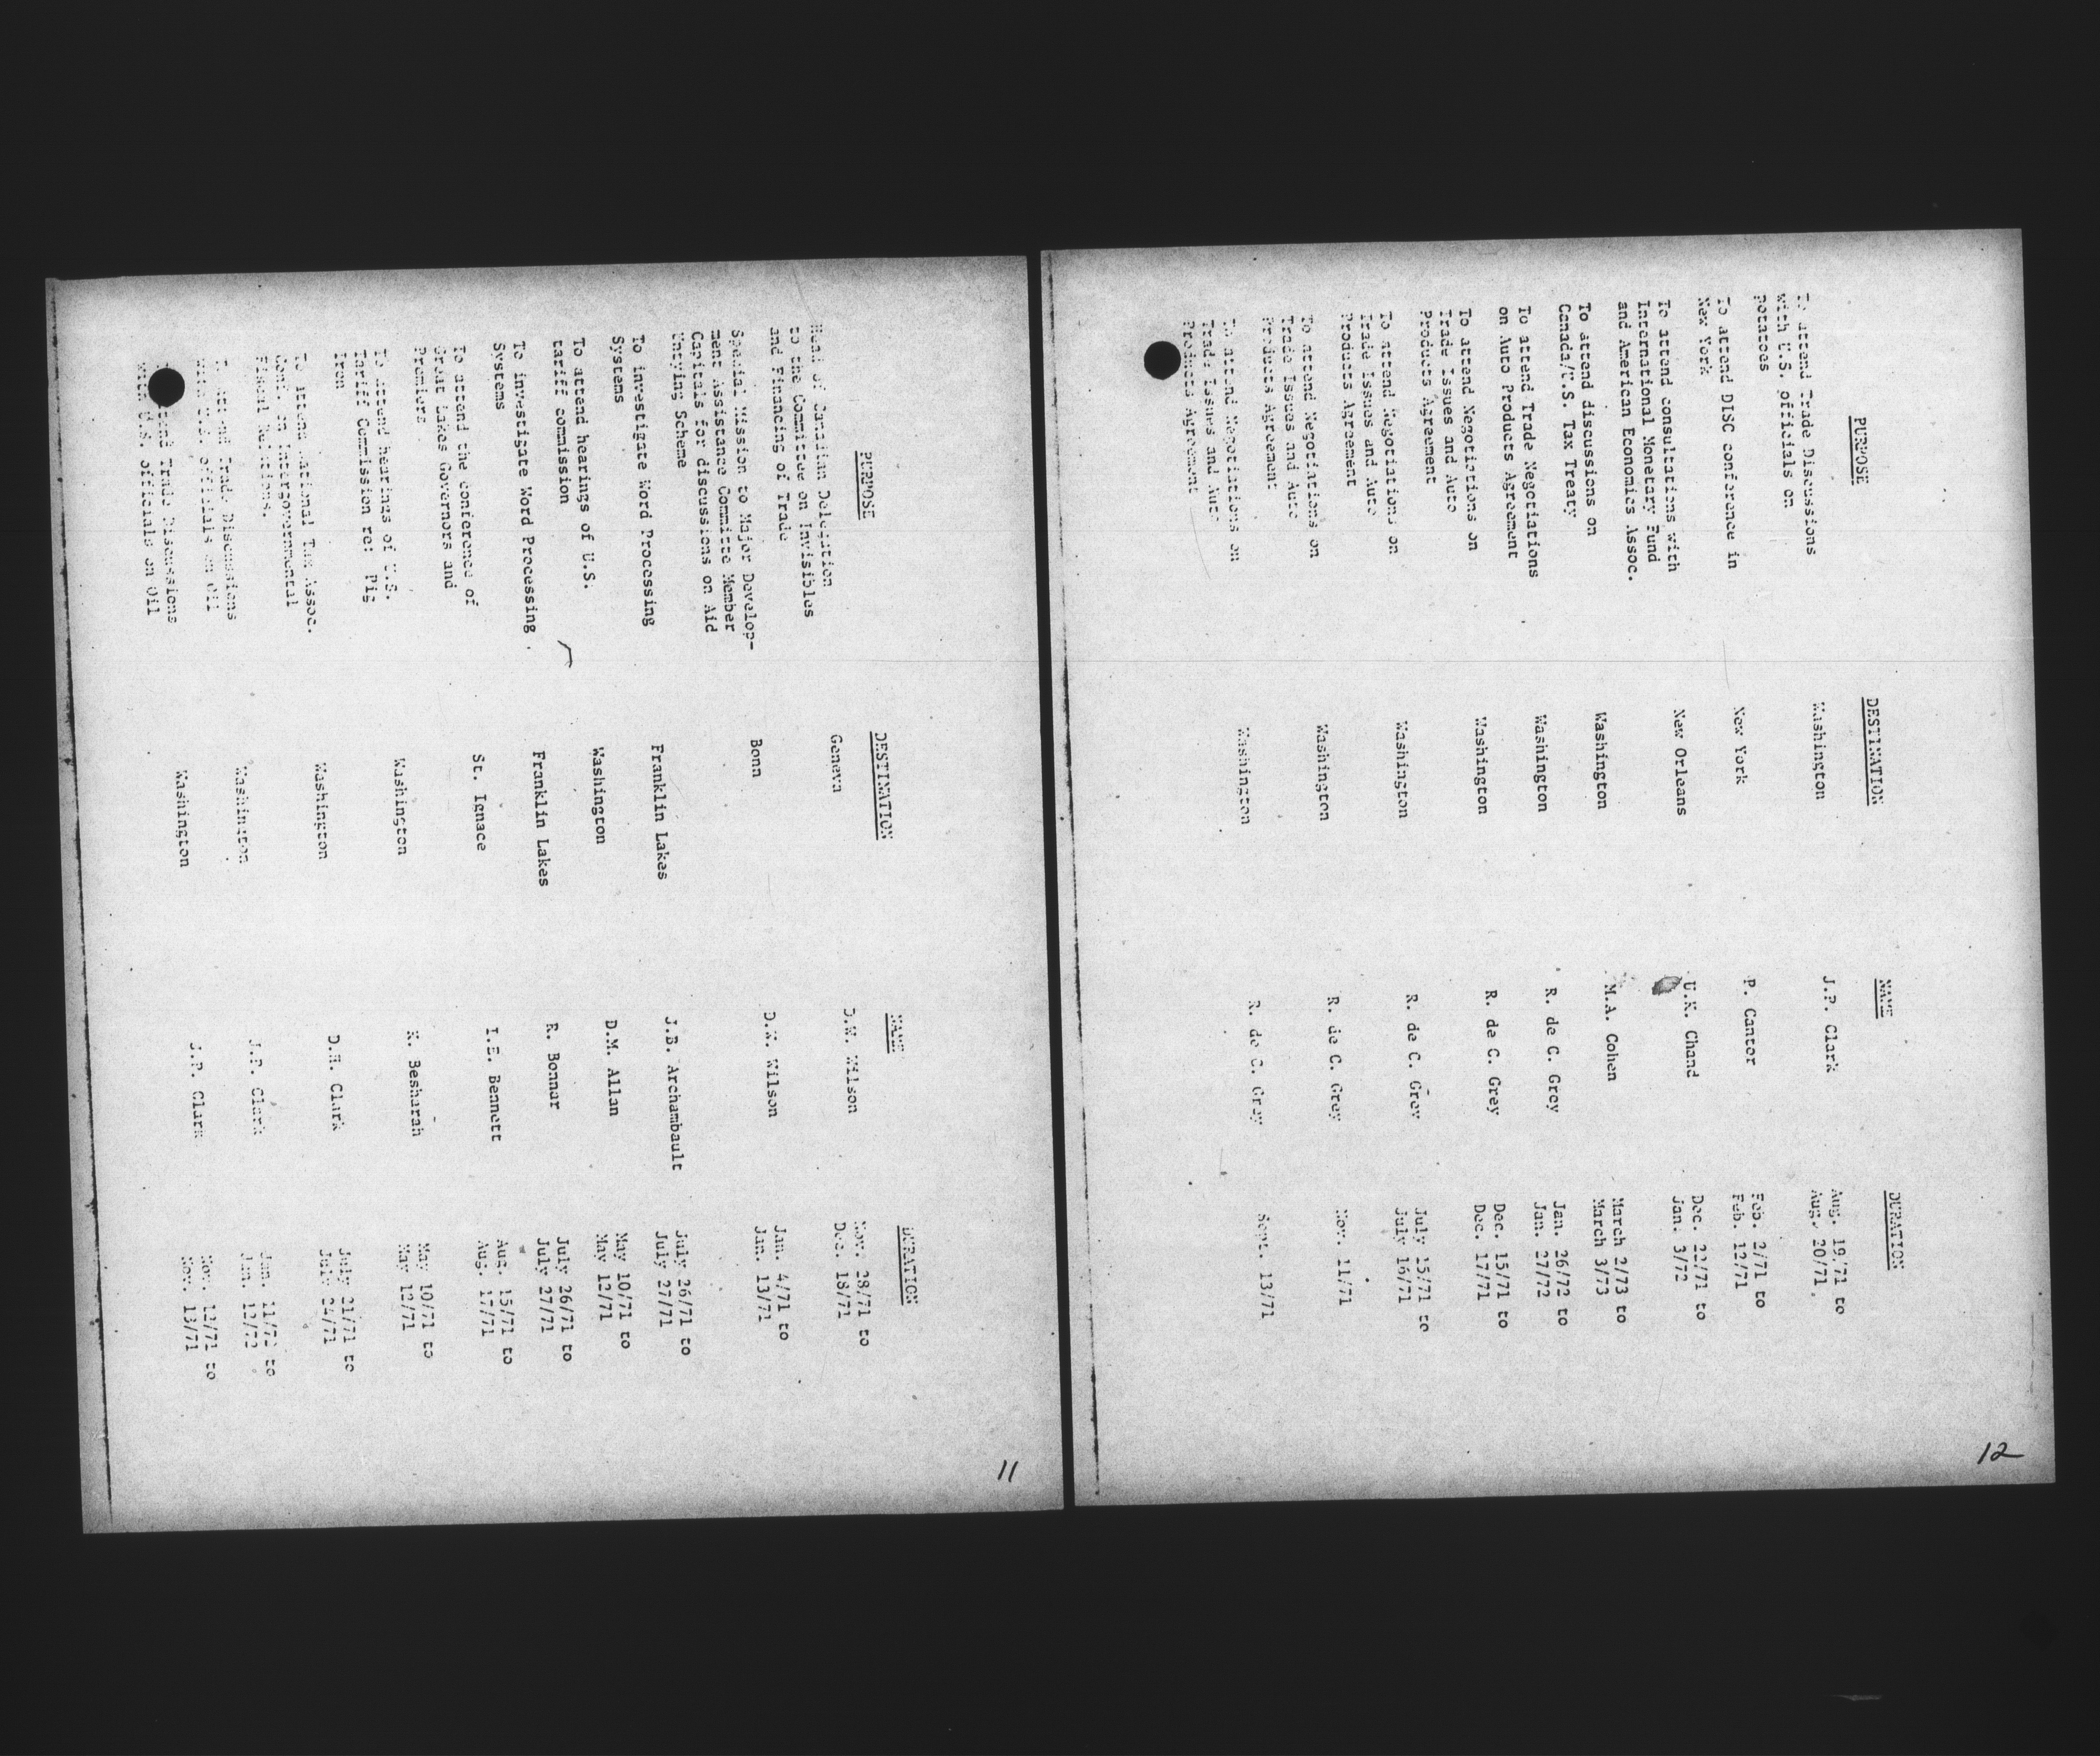 11
PURPOSE DESTINATION NAME DURATION
Head of Canadian Delegation Geneva D.W. Wilson Nov. 28/71 to
to the Committee on Invisibles Dec. 18/71
and Financing of Trade
Special Mission to Major Develop- Bonn D.W. Wilson Jan. 4/71 to
ment Assistance Committe Member Jan. 13/71
Capitals for discussions on Aid
Untying Scheme
To investigate Word Processing Franklin Lakes J.B. Archambault July 26/71 to
Systems July 27/71
To attend hearings of U.S. Washington D.M. Allan May 10/71 to
tariff commission May 12/71
To investigate Word Processing Franklin Lakes R. Bonnar July 26/71 to
Systems July 27/71
To attend the conference of St. Ignace I.E. Bennett Aug. 15/71 to
Great Lakes Governors and Aug. 17/71
Premiers
To attend hearings of U.S. Washington K. Besharah May 10/71 to
Tariff Commission re: Pig May 12/71
Iron
To attend National Tax Assoc. Washington D.H. Clark July 21/71 to
Conf. on Intergovernmental July 24/71
Fiscal Relations.
To attend Trade Discussions Washington J.P. Clark Jan. 11/72 to
with U.S. officials on Oil Jan. 12/72
Trade Discussions Washington J.P. Clark Nov. 12/71 to
with U.S. officials on Oil Nov. 13/71
12
PURPOSE DESTINATION NAME DURATION
To attend Trade Discussions Washington J.P. Clark Aug. 19/71 to
with U.S. officials on Aug. 20/71
potatoes
To attend DISC conference in New York P. Cantor Feb. 2/71 to
New York Feb. 12/71
To attend consultations with New Orleans U.K. Chand Dec. 22/71 to
International Monetary Fund Jan. 3/72
and American Economics Assoc.
To attend discussions on Washington M.A. Cohen March 2/73 to
Canada/U.S. Tax Treaty March 3/73
To attend Trade Negotiations Washington R. de C. Grey Jan. 26/72 to
on Auto Products Agreement Jan. 27/72
To attend Negotiations on Washington R. de C. Grey Dec. 15/71 to
Trade Issues and Auto Dec. 17/71
Products Agreement
To attend Negotiations on Washington R. de C. Grey July 15/71 to
Trade Issues and Auto July 16/71
Products Agreement
To attend Negotiations on Washington R. de C. Grey Nov. 11/71
Trade Issues and Auto
Products Agreement
To attend Negotiations on Washington R. de C. Grey Sept. 13/71
Trade Issues and Auto
Products Agreement